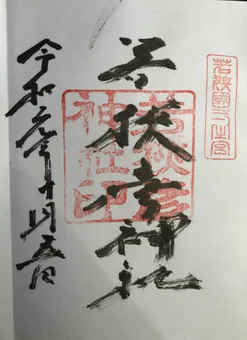 若狭國一之宮
若狭彦神社
若狭彦
神社印
令和六年十月五日